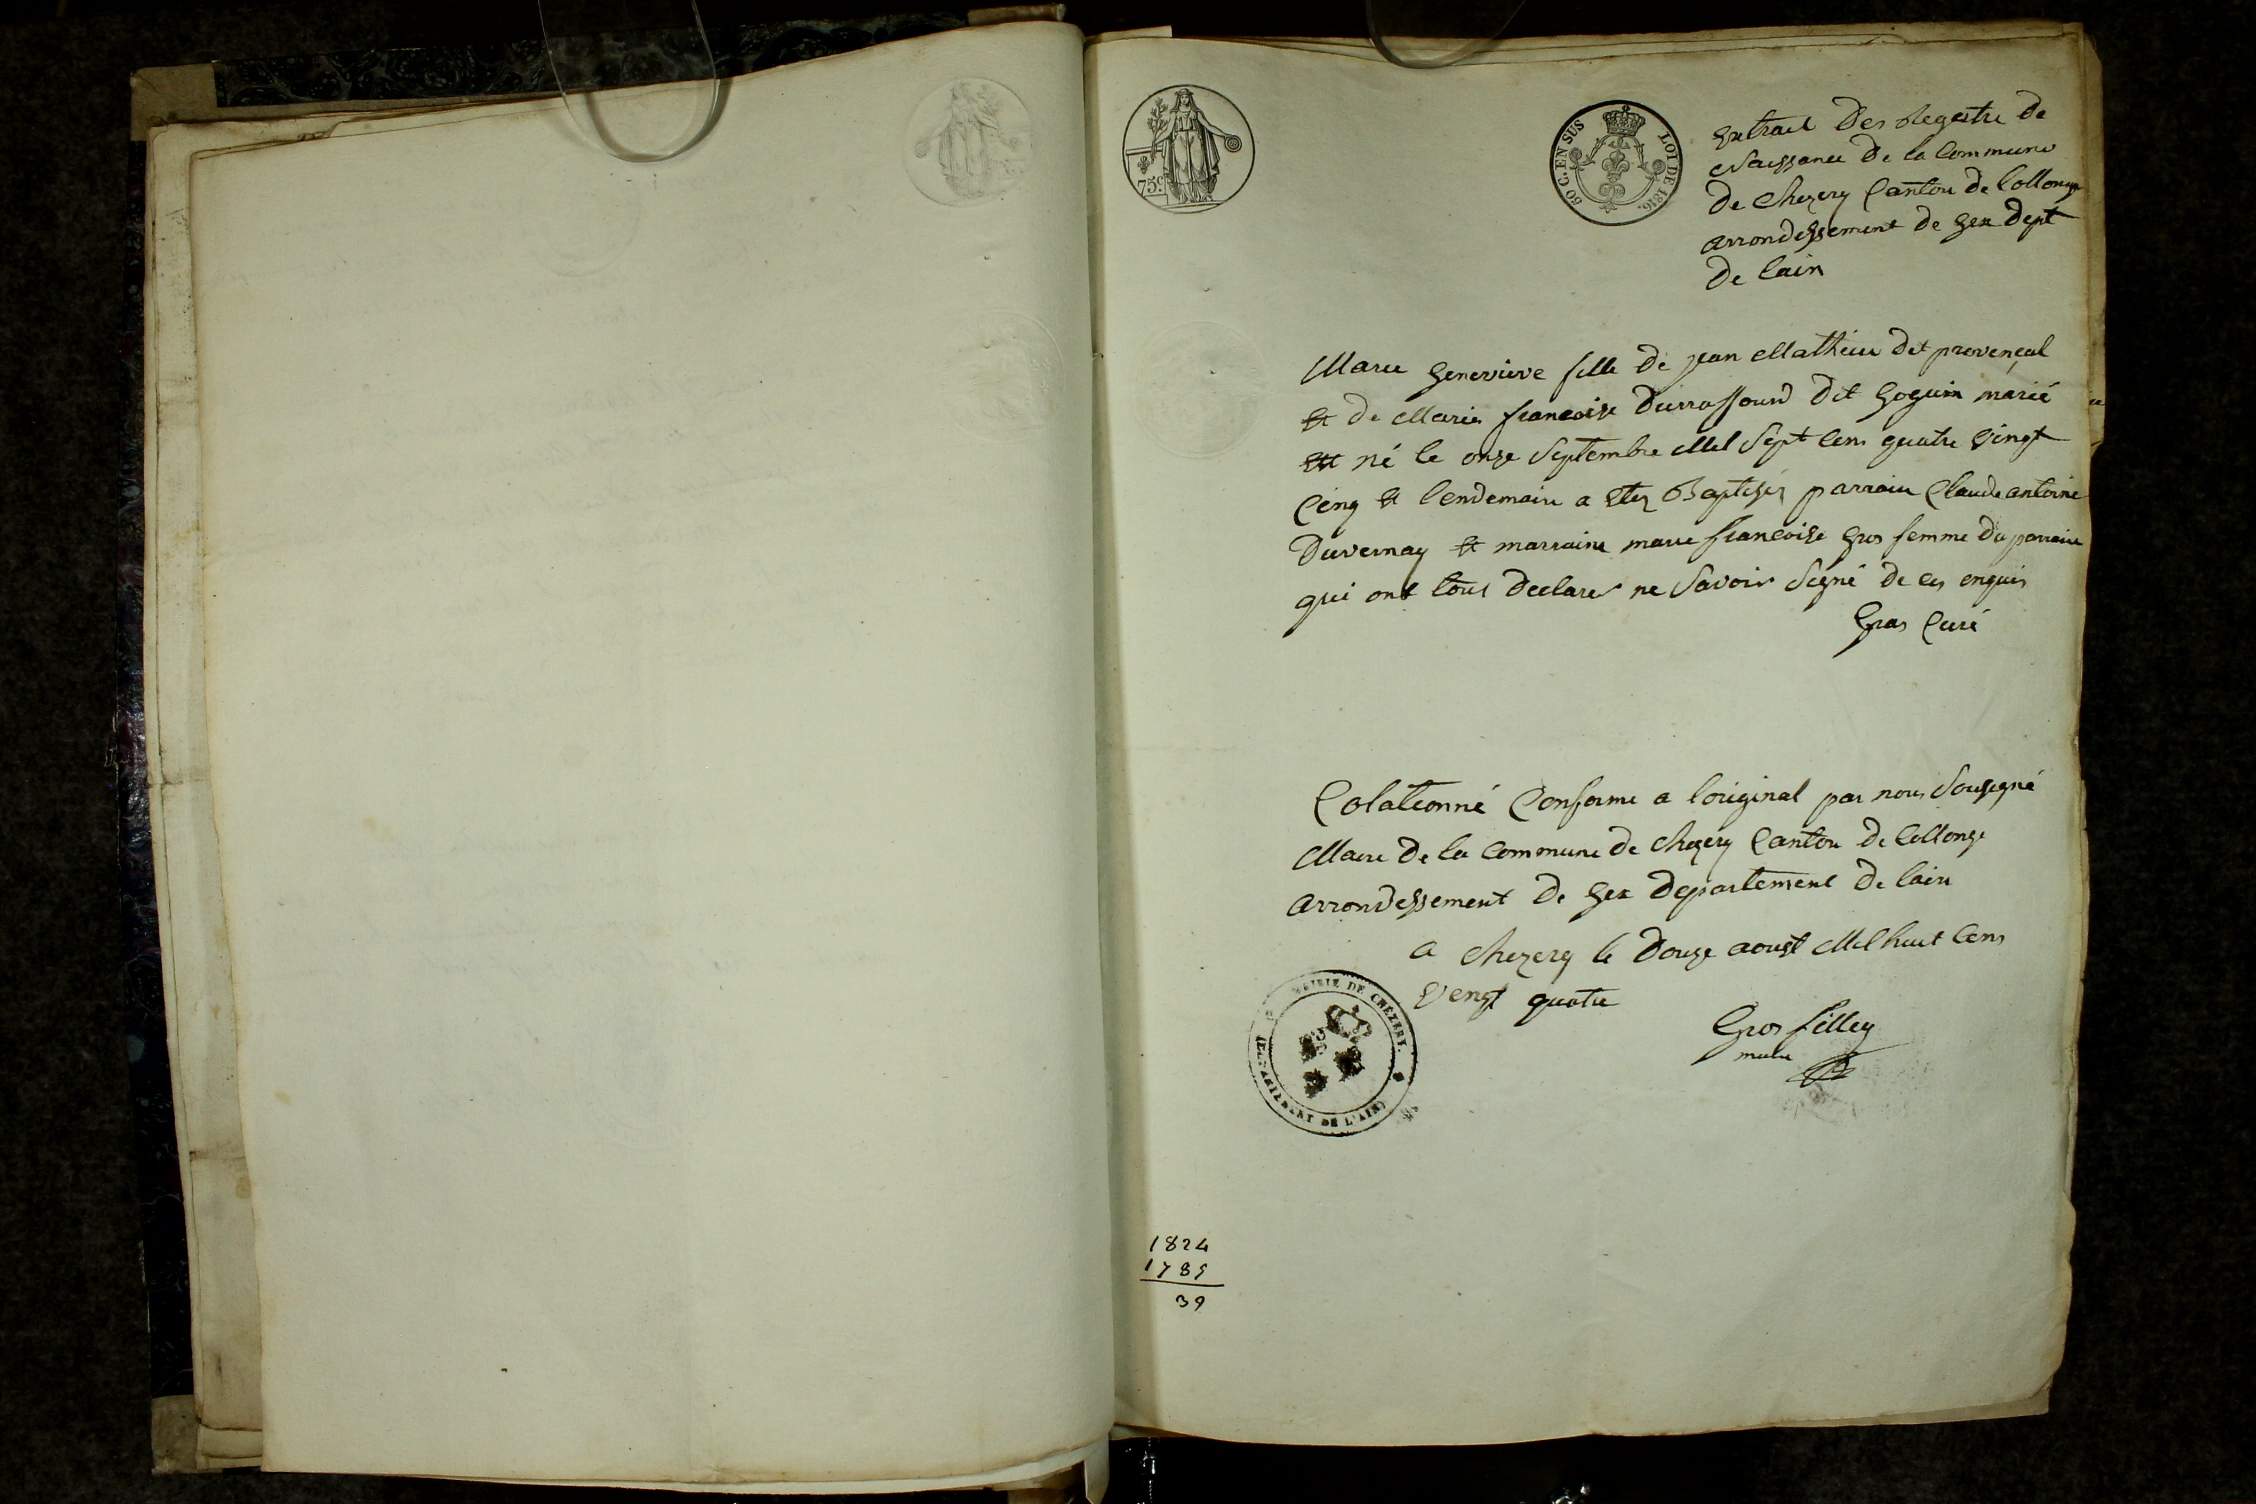 75c.
50 C. EN SUS LOI DE 1816.
Extrait Des Regestre de
Naissance De la Commune
De Chezery Canton de Collonge
arrondessement de Gex Dept
De Lain
Marie Genevieve fille De jean Mathieu Dit provençal
et De Marie francoise Durraffourd Dit Goguin marié
né le onze Septembre Mil Sept Cens quatre vingt
Cinq et Lendemain a Baptisés parrain Claude antoine
Duvernay et marraine marie francoise Gros femme du parrain
qui ont tous Declares ne Savoir Signé de ces enquis
Gras Curé
Colationné Conforme a loriginal par nous Sousigné
Maire De la Commune de Chezery Canton de Collonge
arrondessement De Gex Departement De lain
a Chezery le Douze aoust Mil huit Cens
Vengt quatre
Gros filley
MAIRIE DE CHÉZERY.
(DÉPARTEMENT DE L'AIN)
1824
1785
39